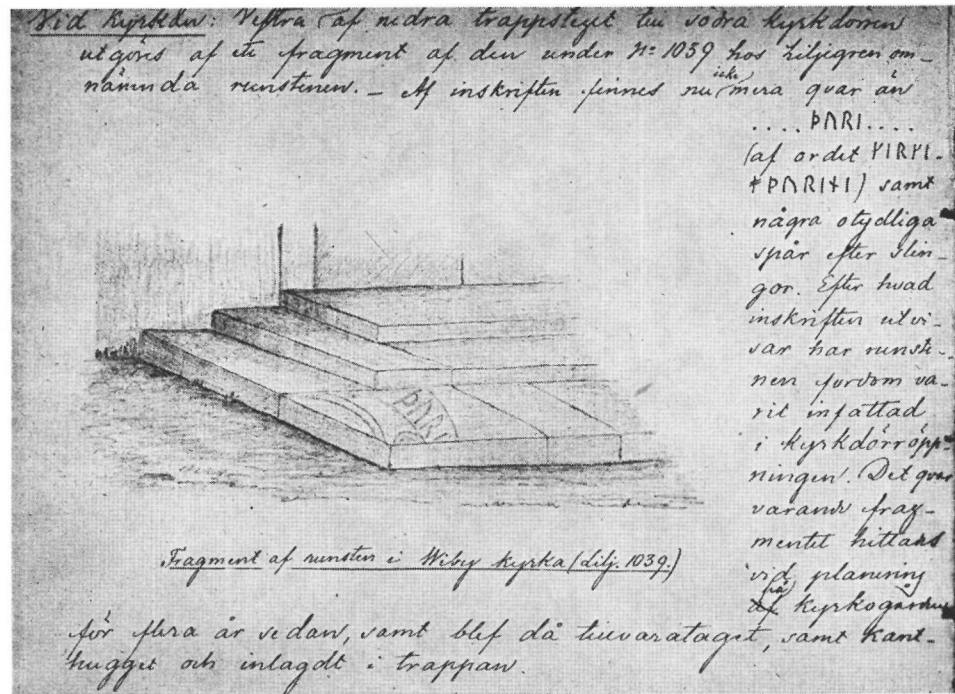 Vid Kyrkan: Vestra af nedra trappsteget till södra kyrkdörren
utgöres af ett fragment af den under No 1039 hos Liljegren om-
nämnda runstenen. – Af inskriften finnes nu icke mera qvar än
.... ᚦᚢRI....
(af ordet ᛉIRᛉI-
ᚾᚦᚢRIᚾI) samt
några otydliga
spår efter slin-
gor. Efter hvad
inskriften utvi-
sar har runste-
nen fordom va-
rit infattad
i kyrkdörröpp-
ningen. Det qvar
varande frag-
mentet hittats
vid planering
på kyrkogården
för flera år sedan, samt blef då tillvarataget, samt kant-
hugget och inlagdt i trappan.
ᚦᚢRI
Fragment af runsten i Wiby kyrka (Lilj. 1039.)